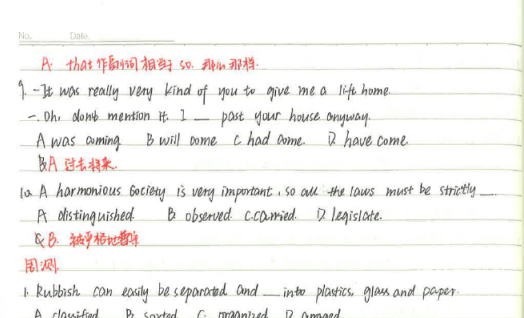 No. Date.
A. that 作副词 相当于 so. 那么 那样.
9. - It was really very kind of you to give me a lift home.
- Oh, don't mention it. I __ past your house anyway.
A was coming B will come C had come. D have come.
A 过去将来
10. A harmonious society is very important, so all the laws must be strictly __.
A distinguished B observed C. carried. D legislate.
B. 被严格地遵守
周测
1. Rubbish can easily be separated and __ into plastics, glass and paper.
A classified B sorted C. organized D